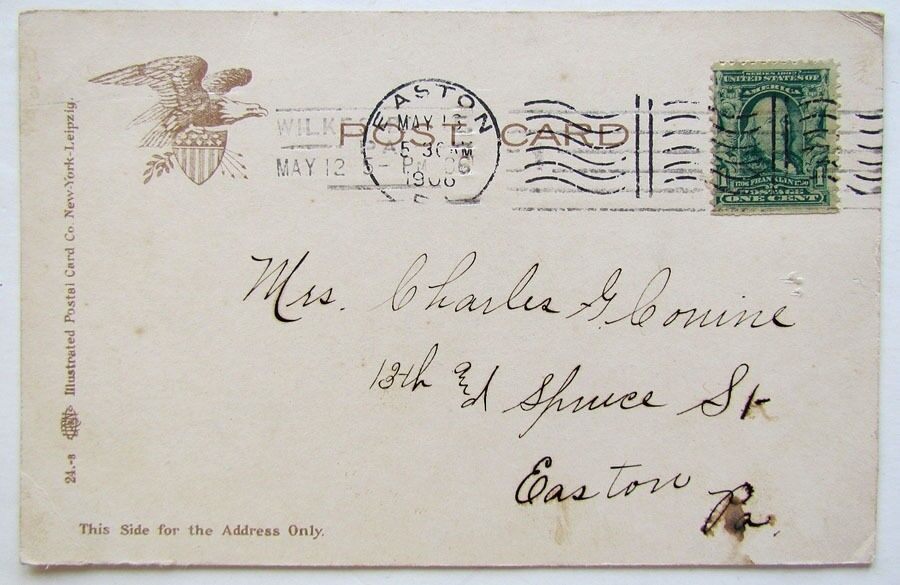 POST CARD
WILKES
MAY 12 5- PM 06
EASTON
MAY 13
5 30 AM
1906
SERIES 1902
UNITED STATES OF
AMERICA
1706 FRANKLIN 1790
POSTAGE
1 1
ONE CENT
Mrs. Charles G. Conine
13th and Spruce St
Easton
Pa.
24.-8 Illustrated Postal Card Co. New-York-Leipzig.
This Side for the Address Only.